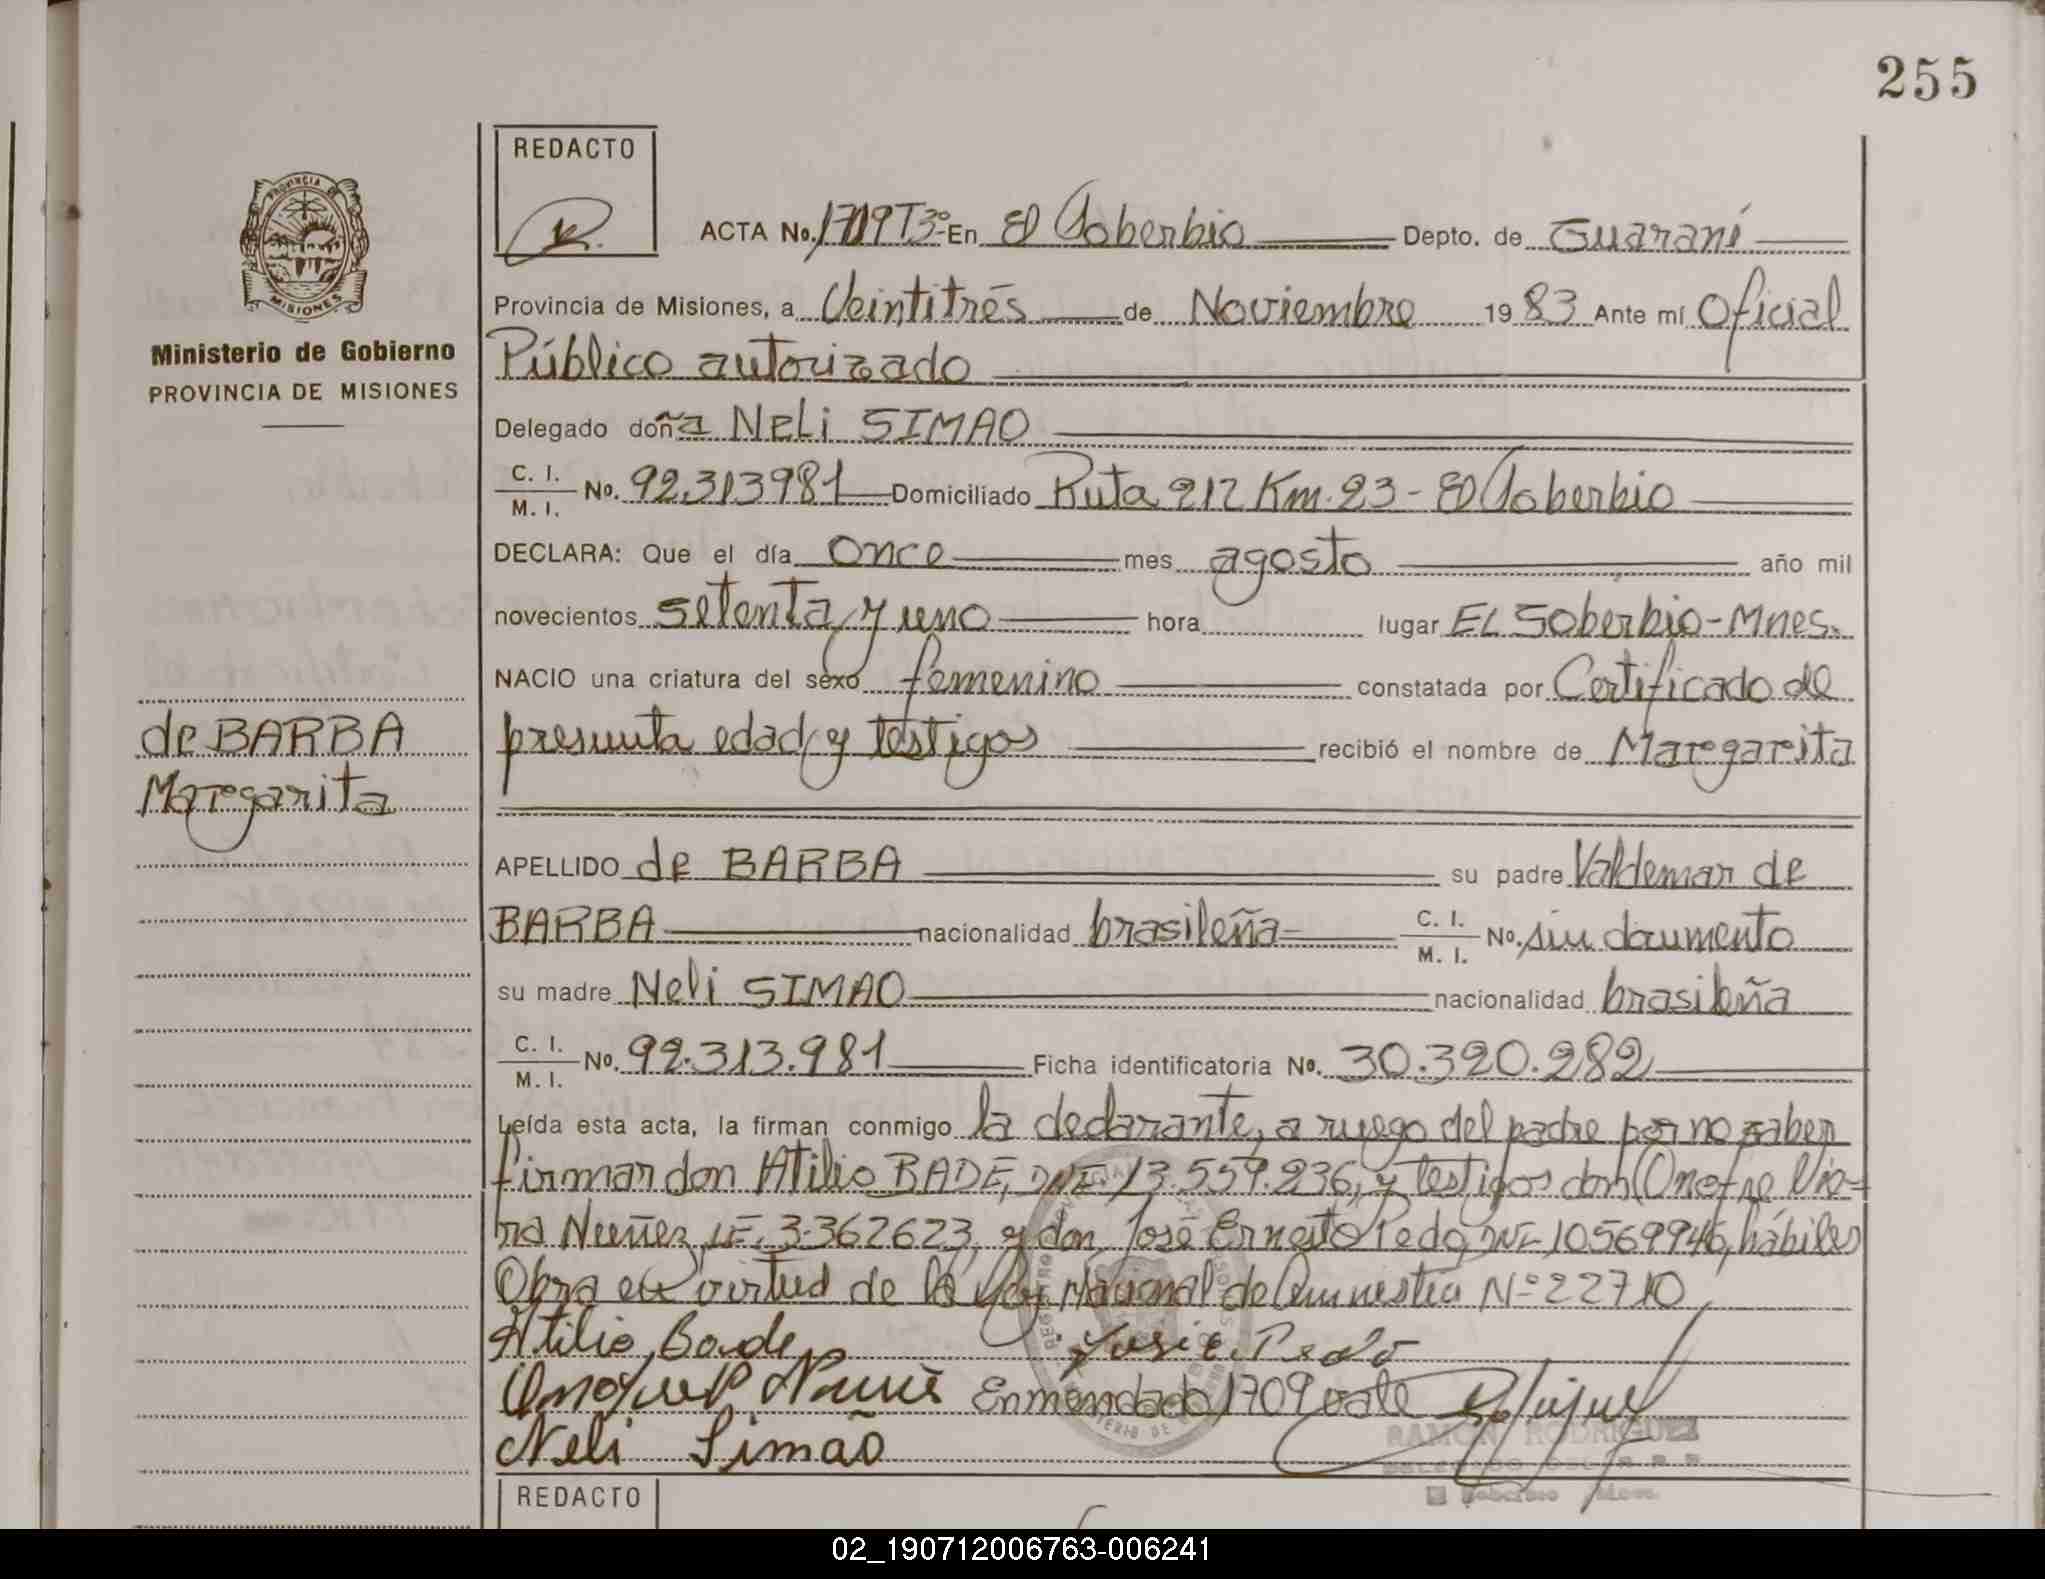 255
REDACTO
PROVINCIA DE
MISIONES
Ministerio de Gobierno
PROVINCIA DE MISIONES
de BARBA
Margarita
ACTA No. T3º En El Soberbio Depto. de Guaraní
Provincia de Misiones, a Veintitrés de Noviembre 1983 Ante mí Oficial
Público autorizado
Delegado doña Neli SIMAO
C. I. / M. I. No. 92.313981 Domiciliado Ruta 212 Km. 23 - El Soberbio
DECLARA: Que el día Once mes agosto año mil
novecientos setenta y uno hora lugar EL Soberbio - Mnes.
NACIO una criatura del sexo femenino constatada por Certificado de
presunta edad y testigos recibió el nombre de Margarita
APELLIDO de BARBA su padre Valdemar de
BARBA nacionalidad brasileña C. I. / M. I. No. sin documento
su madre Neli SIMAO nacionalidad brasileña
C. I. / M. I. No. 92.313.981 Ficha identificatoria No. 30.320.282
Leída esta acta, la firman conmigo la declarante, a ruego del padre por no saber
firmar don Atilio BADE, DNI 13.559.236, y testigos don Onofre Vie-
ra Nuñez, LE. 3.362623, y don José Ernesto Pedo, DNI 10569946, hábiles
Obra en virtud de la Ley Nacional de Amnistia Nº 22710
Atilio Bade José E. Pedo
Enmendado 1709 vale
Neli Simão
RAMON RODRIGUEZ
REDACTO
02_190712006763-006241